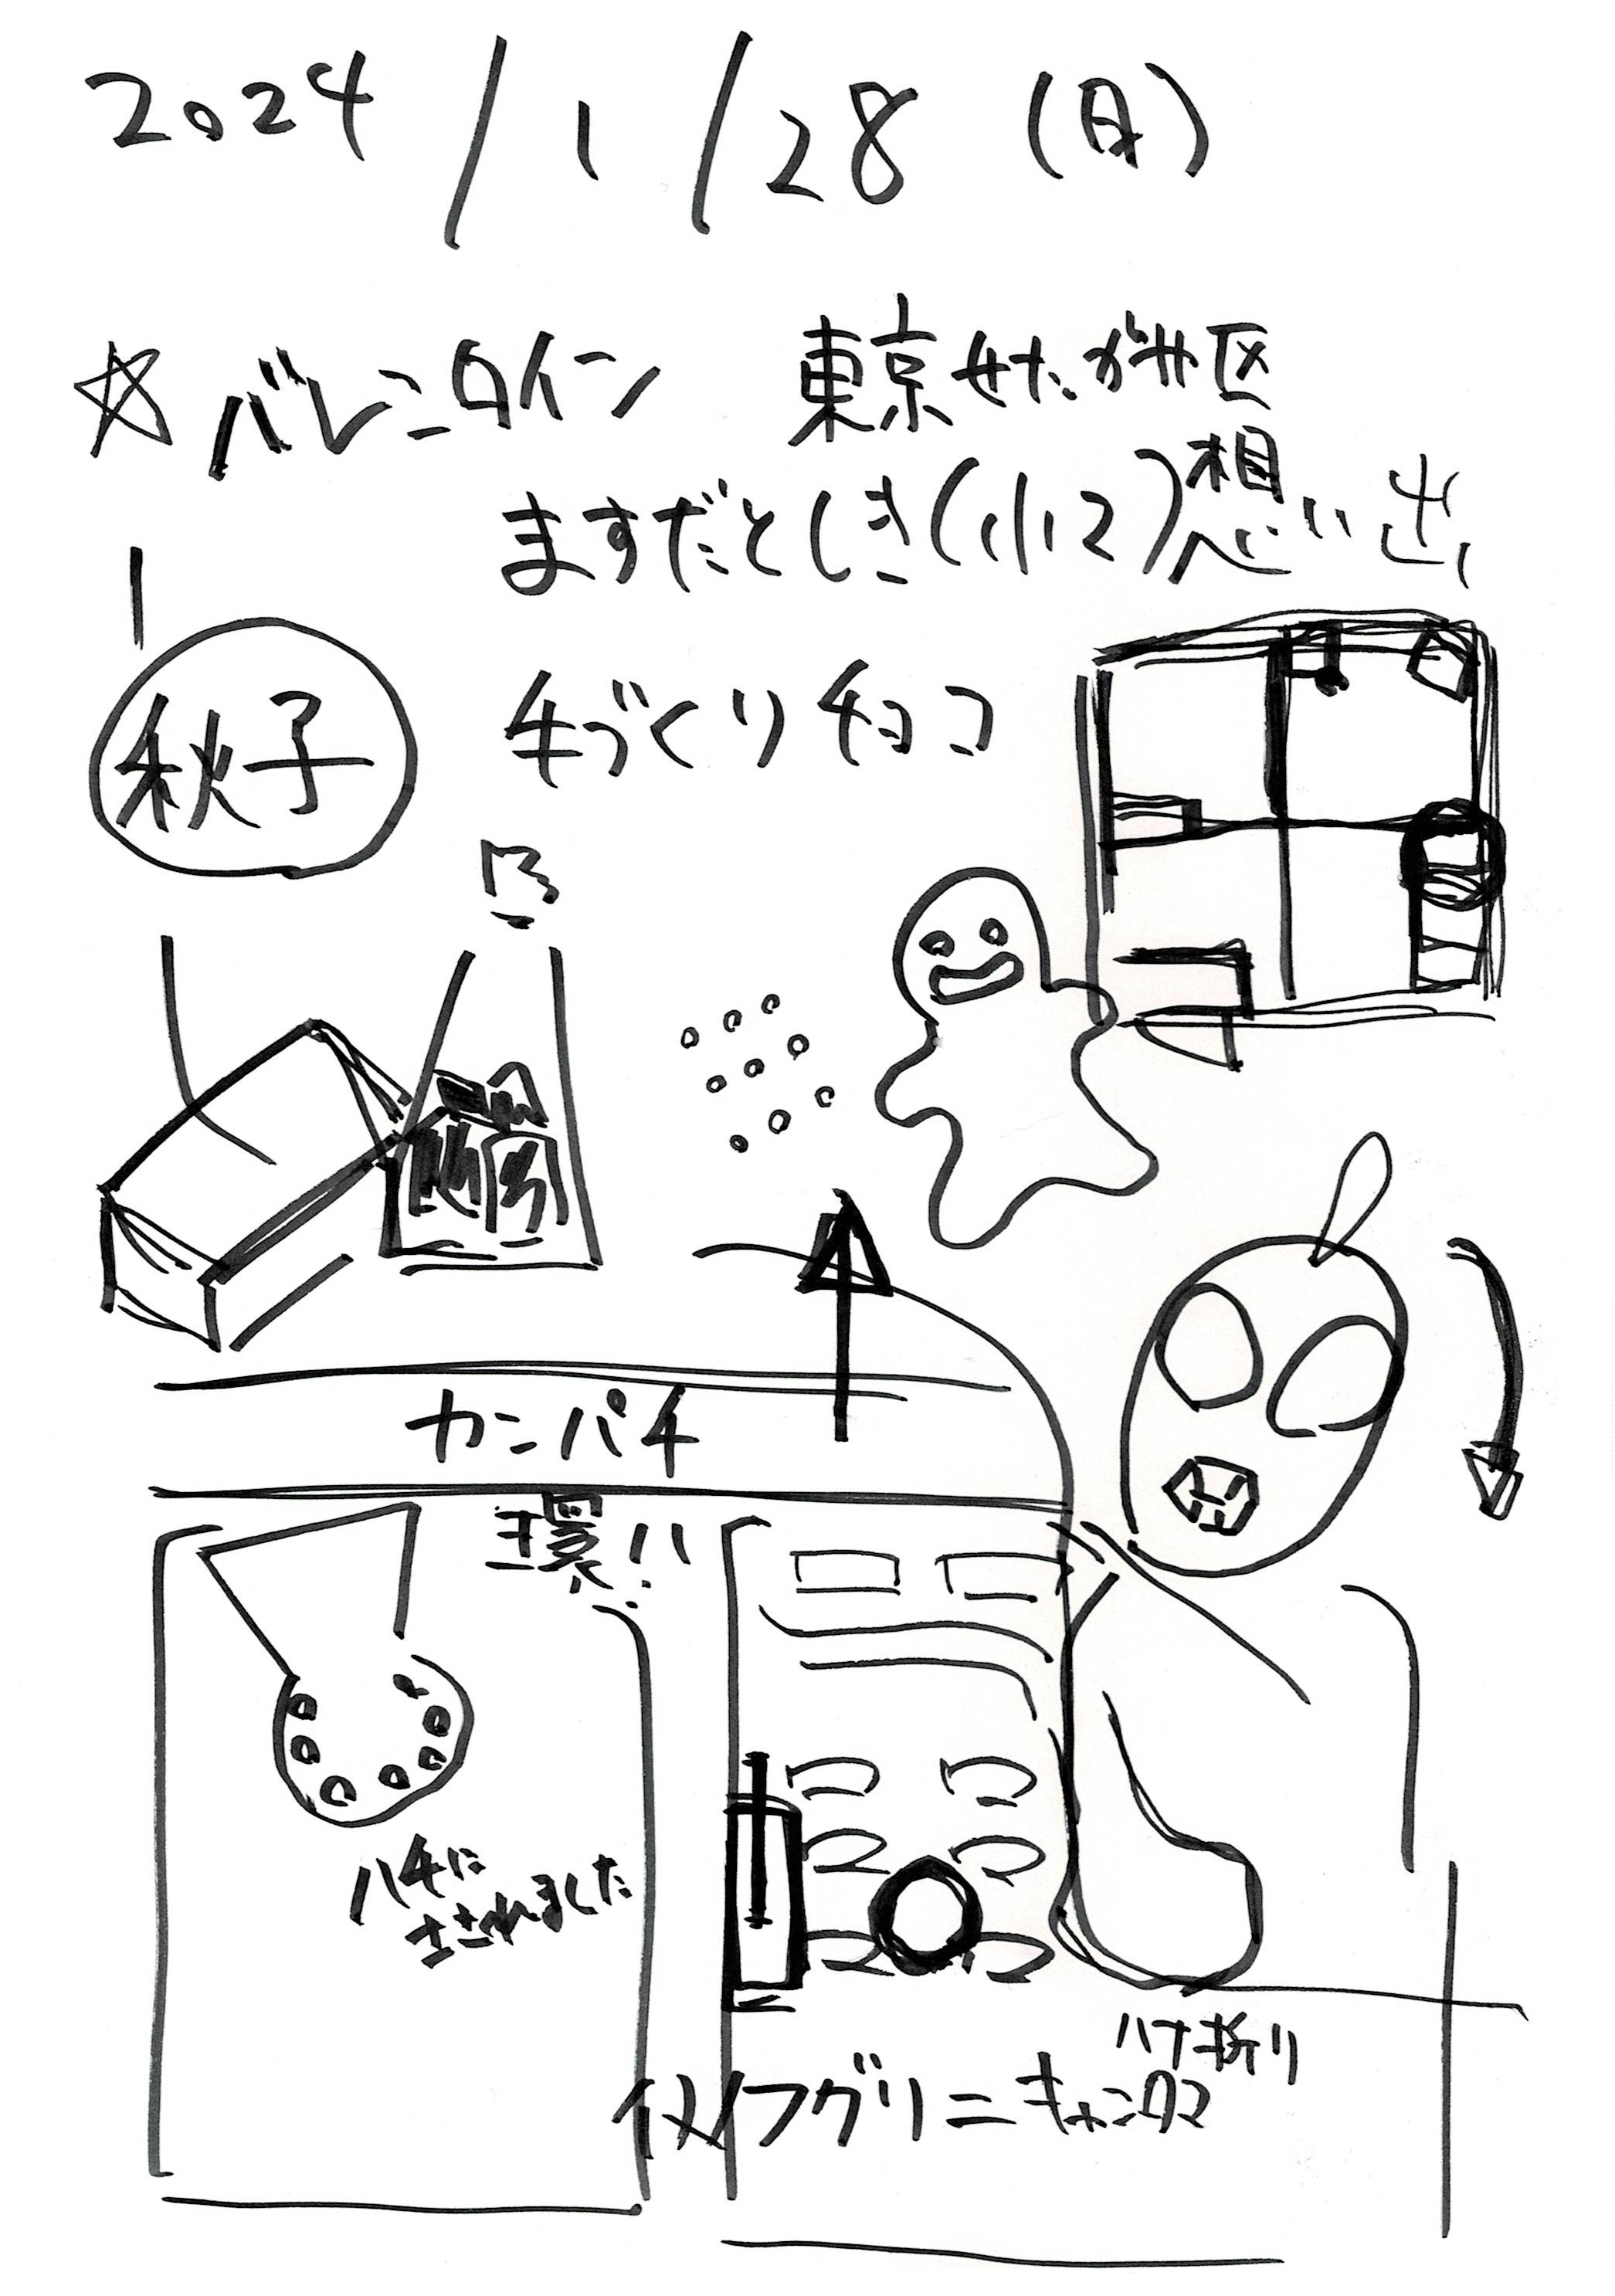 2024/1/28(日)
☆バレンタイン 東京せたがや区
ますだとしき(小2)想い出
秋子 手づくりチョコ
カンパチ
環!!
ハチに
さされました
ハナ折り
イヌノフグリ=キャンタマ